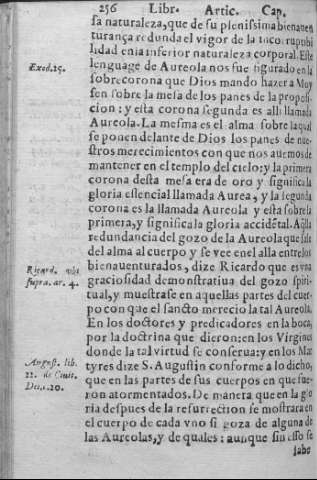 256 Libr. Artic. Cap.
sa naturaleza, que de su plenissima bienauen
turança redunda el vigor de la incorrupubi
lidad en la inferior naturaleza corporal. Este
lenguage de Aureola nos fue figurado en la
Exod. 25.
sobrecorona que Dios mando hazer a Moy
sen sobre la mesa de los panes de la proposi-
cion: y esta corona segunda es alli llamada
Aureola. La mesma es el alma sobre la qual
se ponen delante de Dios los panes de nue-
stros merecimientos con que nos auemos de
mantener en el templo del cielo: y la primera
corona desta mesa era de oro y significa la
gloria essencial llamada Aurea, y la segunda
corona es la llamada Aureola y esta sobre la
primera, y significa gloria accidētal. Aq̃lla
redundancia del gozo de la Aureola que sale
del alma al cuerpo y se vee en el alla entre los
bienauenturados, dize Ricardo que es vna
Ricard. vbi
supra. ar. 4.
graciosidad demonstratiua del gozo spiri-
tual, y muestrase en aquellas partes del cuer-
po con que el sancto merecio la tal Aureola.
En los doctores y predicadores en la boca,
por la doctrina que dieron: en los Virgines
donde la tal virtud se conserua: y en los Mar
tyres dize S. Augustin conforme a lo dicho,
August. lib.
22. de Ciuit.
Dei. c. 20.
que en las partes de sus cuerpos en que fue-
ron atormentados. De manera que en la glo
ria despues de la resurrection se mostrara en
el cuerpo de cada vno si goza de alguna de
las Aureolas, y de quales: aunque sin esso se
sabe